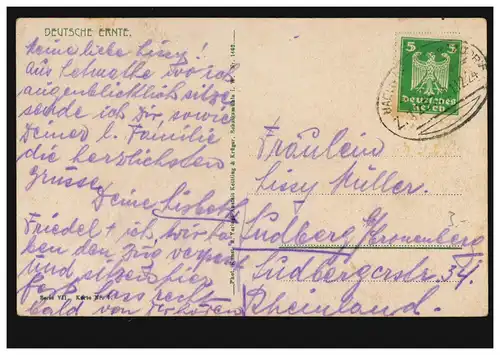 DEUTSCHE ERNTE.
Meine liebe Lissy!
Aus Letmathe wo ich
augenblicklich sitze
sende ich Dir, sowie
Deiner l. Familie
die herzlichsten
grüsse,
Deine Lisbeth
Friedel + ich, wir ha-
ben den Zug verpasst
und sitzen hier
fest, lass recht
bald von Dir hören
Serie VII. Karte Nr.
5 5
Deutsches
Reich
Fräulein
Lissy Müller.
Südberg b/Cronenberg
Südbergerstr. 34.
Rheinland.
3-